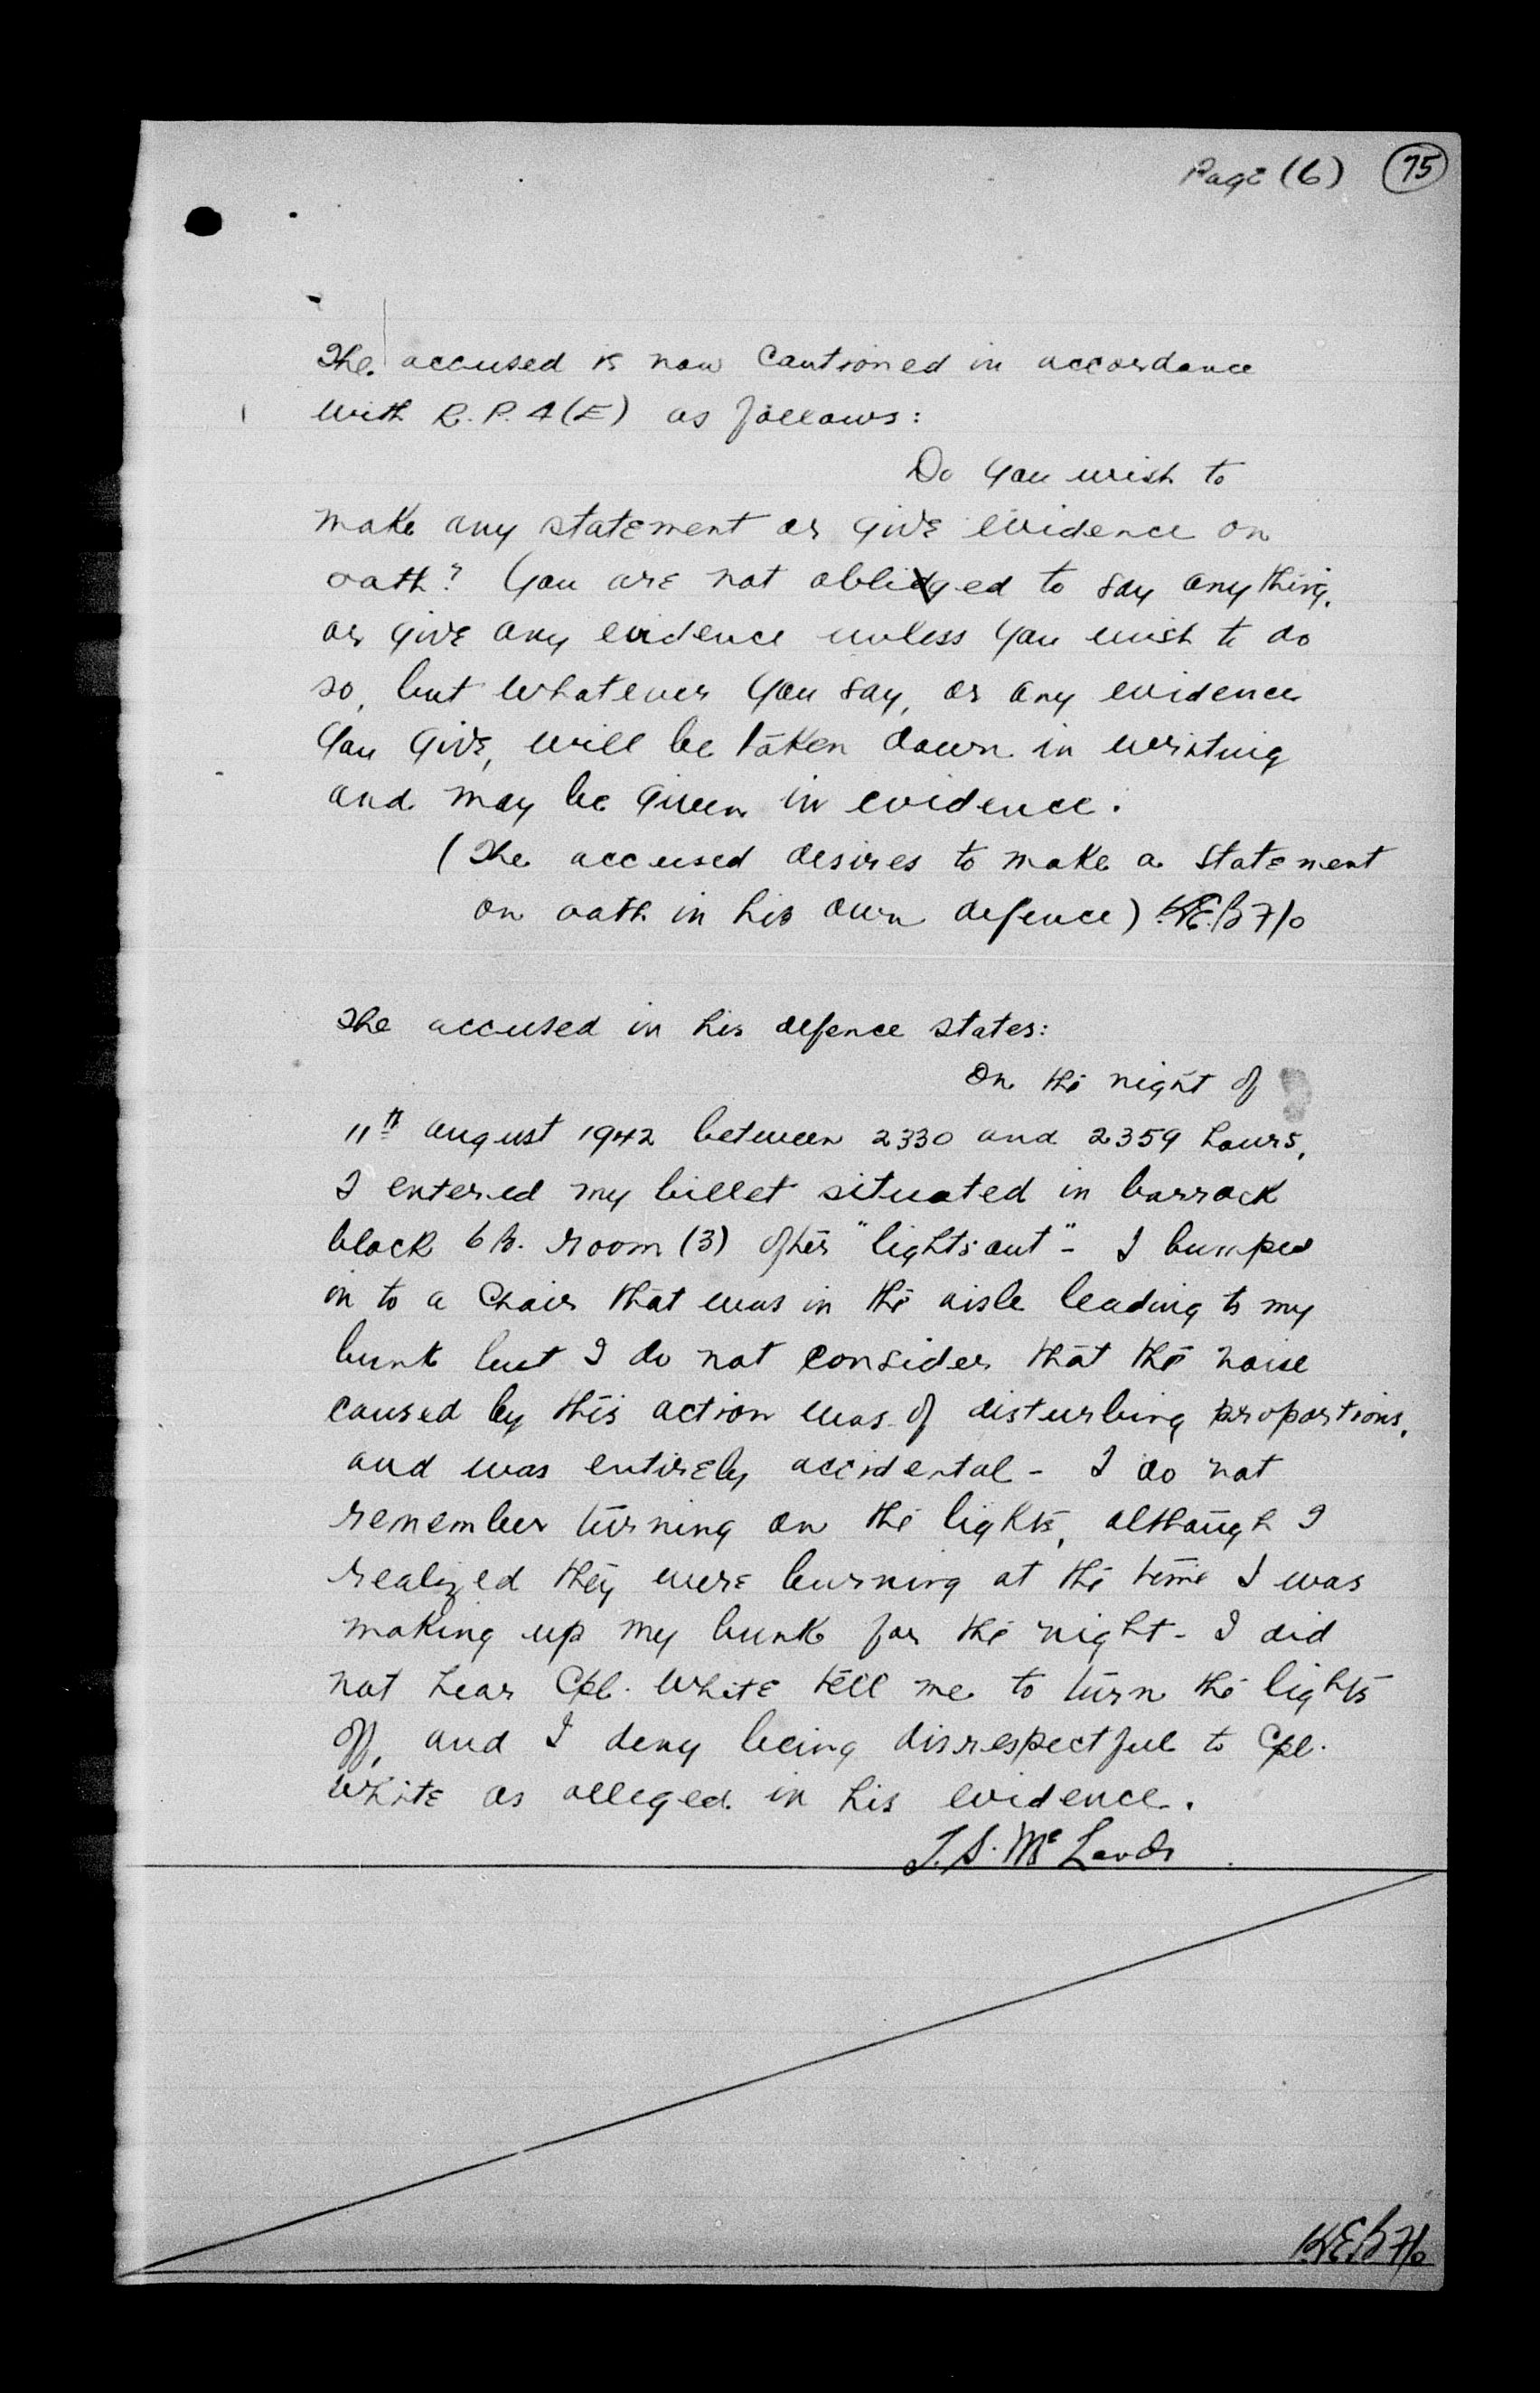 Page (6) 75
The accused is now Cautioned in accordance
with R.P. 4(E) as follows:
Do you wish to
make any statement or give evidence on
oath? You are not obliged to say anything,
or give any evidence unless you wish to do
so, but whatever you say, or any evidence
you give, will be taken down in writing
and may be given in evidence.
(The accused desires to make a statement
on oath in his own defence) K.E.B F/O
The accused in his defence states:
On the night of
11th august 1942 between 2330 and 2359 hours,
I entered my billet situated in barrack
block 6B. room (3) after "lights out" - I bumped
in to a chair that was in the aisle leading to my
bunk but I do not consider that the noise
caused by this action was of disturbing proportions,
and was entirely accidental - I do not
remember turning on the lights, although I
realized they were burning at the time I was
making up my bunk for the night - I did
not hear Cpl. White tell me to turn the lights
off, and I deny being disrespectful to Cpl.
White as alleged in his evidence.
KEB F/O